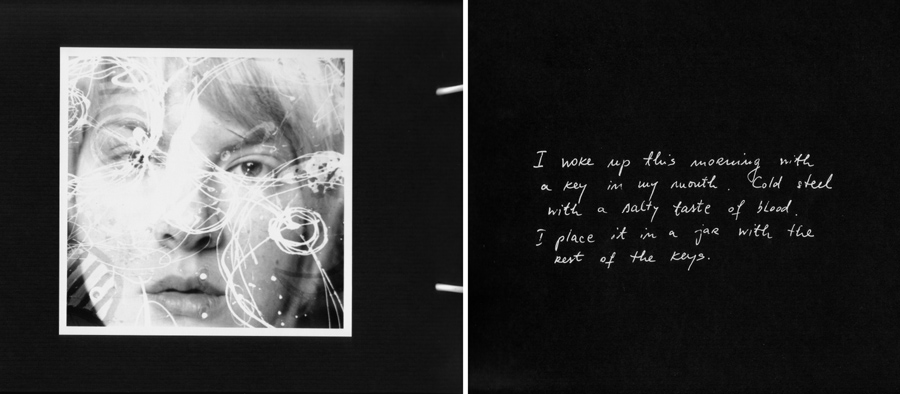 I woke up this morning with
a key in my mouth. Cold steel
with a salty taste of blood.
I place it in a jar with the
rest of the keys.